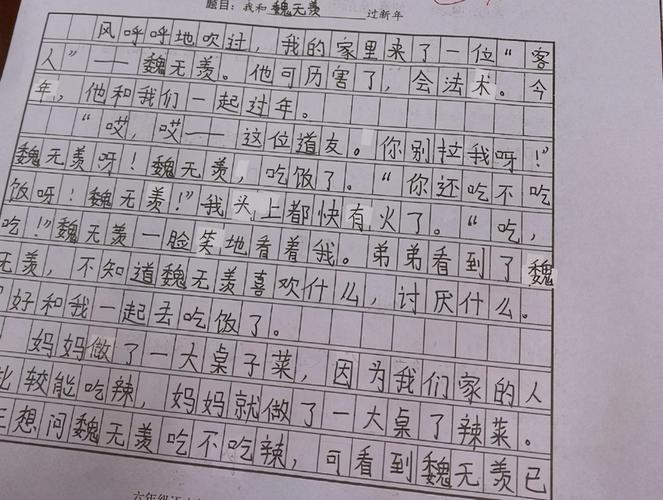 题目：我和魏无羡过新年
风呼呼地吹过，我的家里来了一位“客
人”——魏无羡。他可厉害了，会法术。今
年，他和我们一起过年。
“哎，哎——这位道友。你别拉我呀！”
魏无羡呀！魏无羡，吃饭了。“你还吃不吃
饭呀！魏无羡！”我头上都快有火了。“吃，
吃！”魏无羡一脸笑地看着我。弟弟看到了魏
无羡，不知道魏无羡喜欢什么，讨厌什么。
好和我一起去吃饭了。
妈妈做了一大桌子菜，因为我们家的人
比较能吃辣，妈妈就做了一大桌了辣菜。
想问魏无羡吃不吃辣，可看到魏无羡已
六年级